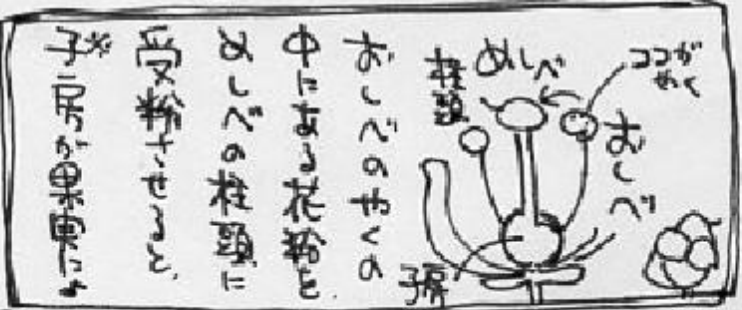 ココが
やく
めしべ
柱頭
おしべ
子房
おしべのやくの
中にある花粉を
めしべの柱頭に
受粉させると、
※子房が果実に